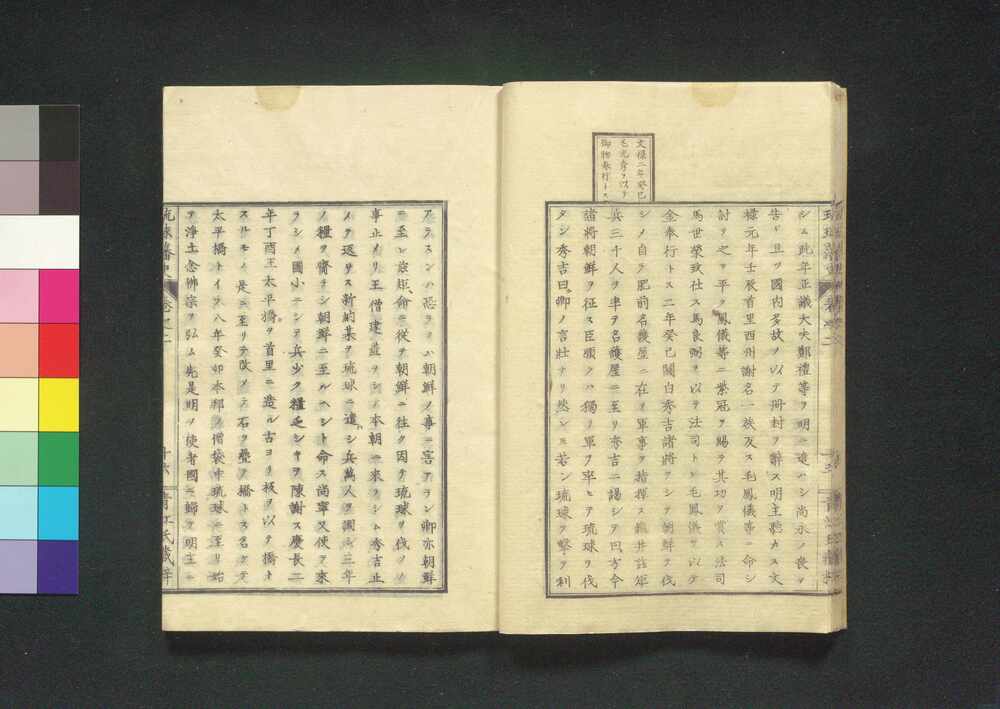 文祿二年癸巳
毛允屑ヲ以テ
御物奉行トス
シム此年正議大夫鄭禮等ヲ明ニ遣ハシ尚永ノ喪ヲ
告ケ且ツ國内多故ノ以テ冊封ヲ辭ス明主聽カス文
祿元年壬辰首里西州謝名一族反ス毛鳳儀等ニ命シ
討テ之ヲ平ク鳳儀等ニ紫冠ヲ賜ヒ其功ヲ賞ス法司
馬世榮致仕ス馬良弼ヲ以テ法司トシ毛鳳儀ヲ以テ
金奉行トス二年癸巳關白秀吉諸將ヲシテ朝鮮ヲ伐
シメ自ラ肥前名護屋ニ在リ軍事ヲ指揮ス龜井玆矩
兵三千人ヲ率ヰ名護屋ニ至リ秀吉ニ謁シテ曰方今
諸將朝鮮ヲ征ス臣願クハ獨リ軍ヲ率ヒテ琉球ヲ伐
タン秀吉曰卿ノ言壯ナリ然レ若シ琉球ヲ擊テ利
アラスンハ恐ラクハ朝鮮ノ事ニ害アラン卿亦朝鮮
ニ至レ玆矩命ニ從テ朝鮮ニ往ク因テ琉球ヲ伐ツノ
事止メリ王僧建善ヲシテ本朝ニ來ラシム秀吉止
メテ返サス新納某ヲ琉球ニ遣ハシ兵萬人ヲ調シ三年
ノ糧ヲ齎ラシ朝鮮ニ至ルヘシト命ス尚寧又使ヲ來
ラシメ國小ニシテ兵少ク糧乏シキヲ陳謝ス慶長二
年丁酉王太平橋ヲ首里ニ造ル古ヨリ板ヲ以テ橋ト
ス是ニ至リテ改メテ石ヲ疊テ橋トス名ケテ
太平橋トイフ八年癸卯本邦ノ僧袋中琉球ニ至リ始
テ淨土念佛宗ヲ弘ム先是明ノ使者國ニ歸リ明主ニ
琉球藩史
卷之二
十六
青江氏藏梓